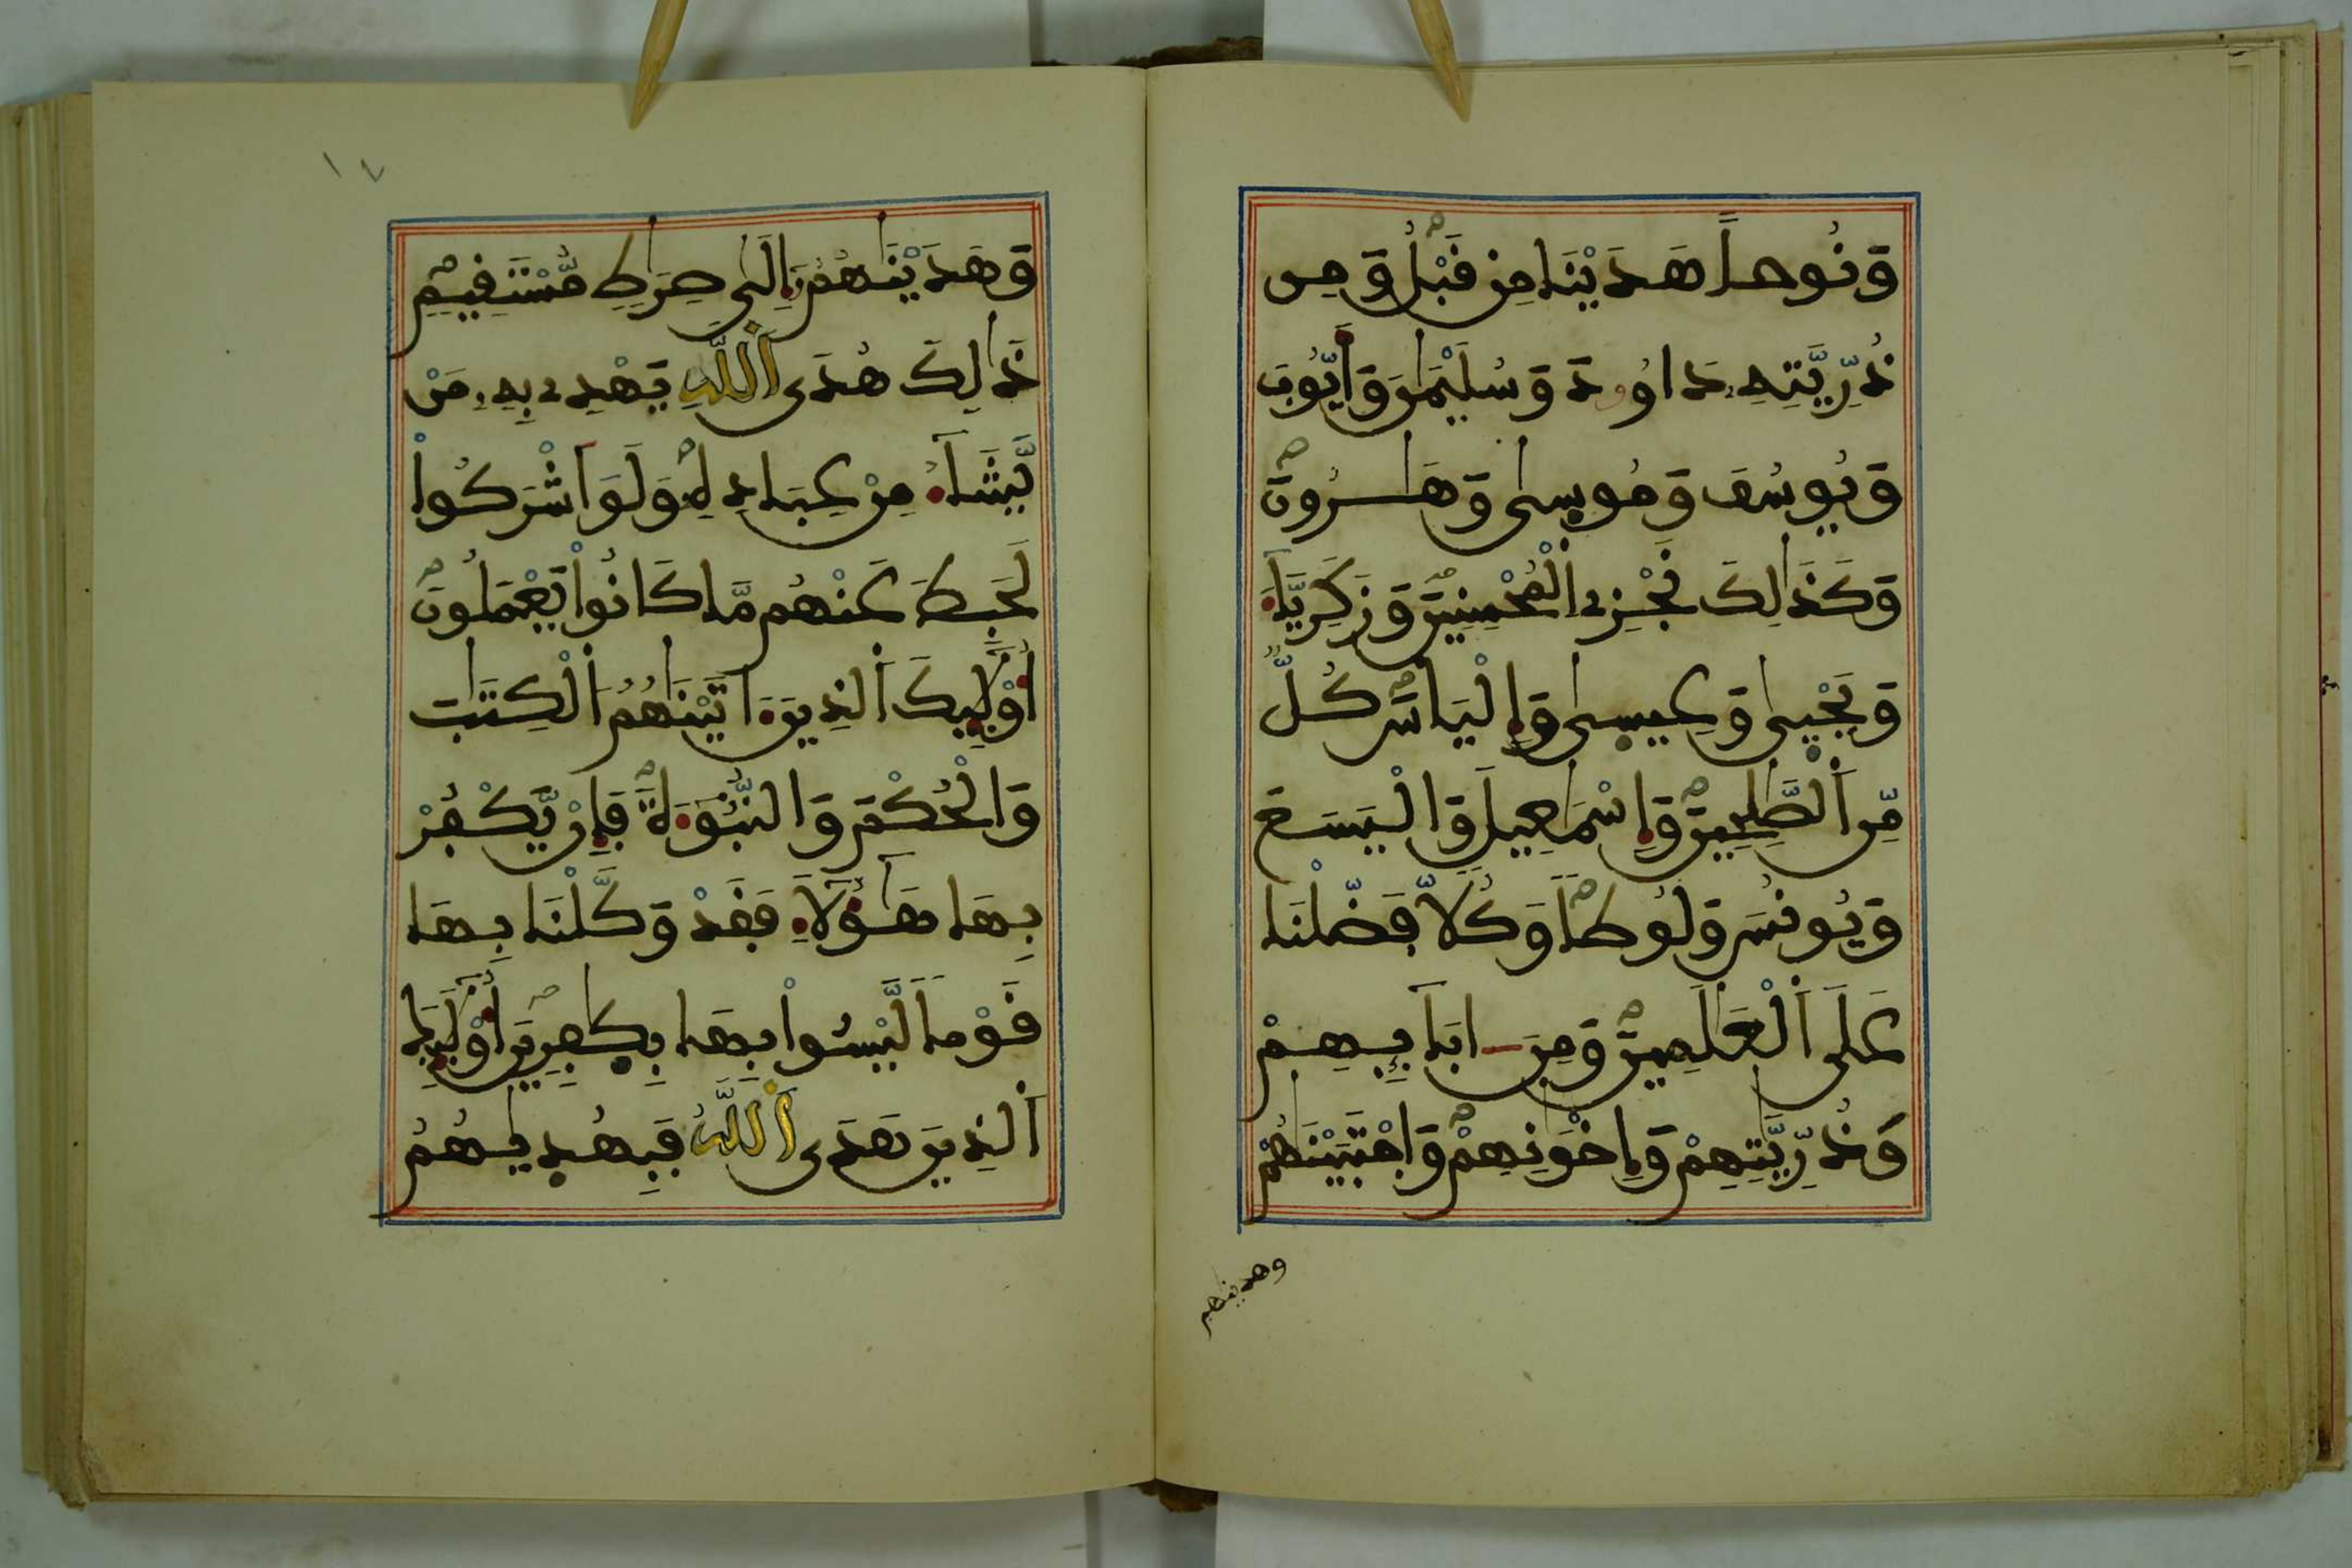 وَنُوحاً هَدَيْنَا مِن قَبْلُ وَمِن
ذُرِّيَّتِهِۦ دَاوُۥدَ وَسُلَيْمَٰنَ وَأَيُّوبَ
وَيُوسُفَ وَمُوسِىٰ وَهَٰرُونَ
وَكَذَٰلِكَ نَجْزِے اِ۬لْمُحْسِنِينَ وَزَكَرِيَّآءَ
وَيَحْيِىٰ وَعِيسِىٰ وَإِلْيَاسَ كُلّٞ
مِّنَ اَ۬لصَّٰلِحِينَ وَإِسْمَٰعِيلَ وَالْيَسَعَ
وَيُونُسَ وَلُوطاً وَكُلّاً فَضَّلْنَا
عَلَى اَ۬لْعَٰلَمِينَ وَمِنَ ـ ابَآئِهِمْ
وَذُرِّيَّٰتِهِمْ وَإِخْوَٰنِهِمْ وَاجْتَبَيْنَٰهُمْ
وهدينهم
١٧
وَهَدَيْنَٰهُمُۥٓ إِلَىٰ صِرَٰطٖ مُّسْتَقِيمٖ
ذَٰلِكَ هُدَى اَ۬للَّهِ يَهْدِے بِهِۦ مَنْ
يَّشَآءُ مِنْ عِبَادِهِۦ وَلَوَ اَشْرَكُواْ
لَحَبِطَ عَنْهُم مَّا كَانُواْ يَعْمَلُونَ
أُوْلَٰٓئِكَ اَ۬لذِينَ ءَاتَيْنَٰهُمُ اُ۬لْكِتَٰبَ
وَالْحُكْمَ وَالنُّبُوٓءَةَ فَإِنْ يَّكْفُرْ
بِهَا هَٰٓؤُلَآءِ فَقَدْ وَكَّلْنَا بِهَا
قَوْماً لَّيْسُواْ بِهَا بِكٰ۪فِرِينَ أُوْلَٰٓئِكَ
اَ۬لذِينَ هَدَى اَ۬للَّهُ فَبِهُد۪يٰهُمُ